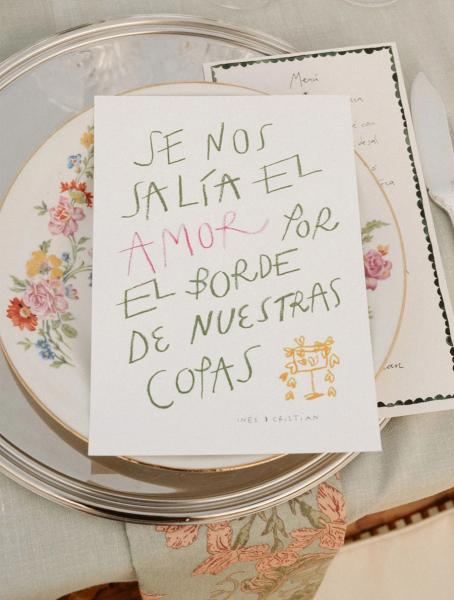 SE NOS
SALÍA EL
AMOR POR
EL BORDE
DE NUESTRAS
COPAS
INÉS & CRISTIAN
Menú
con